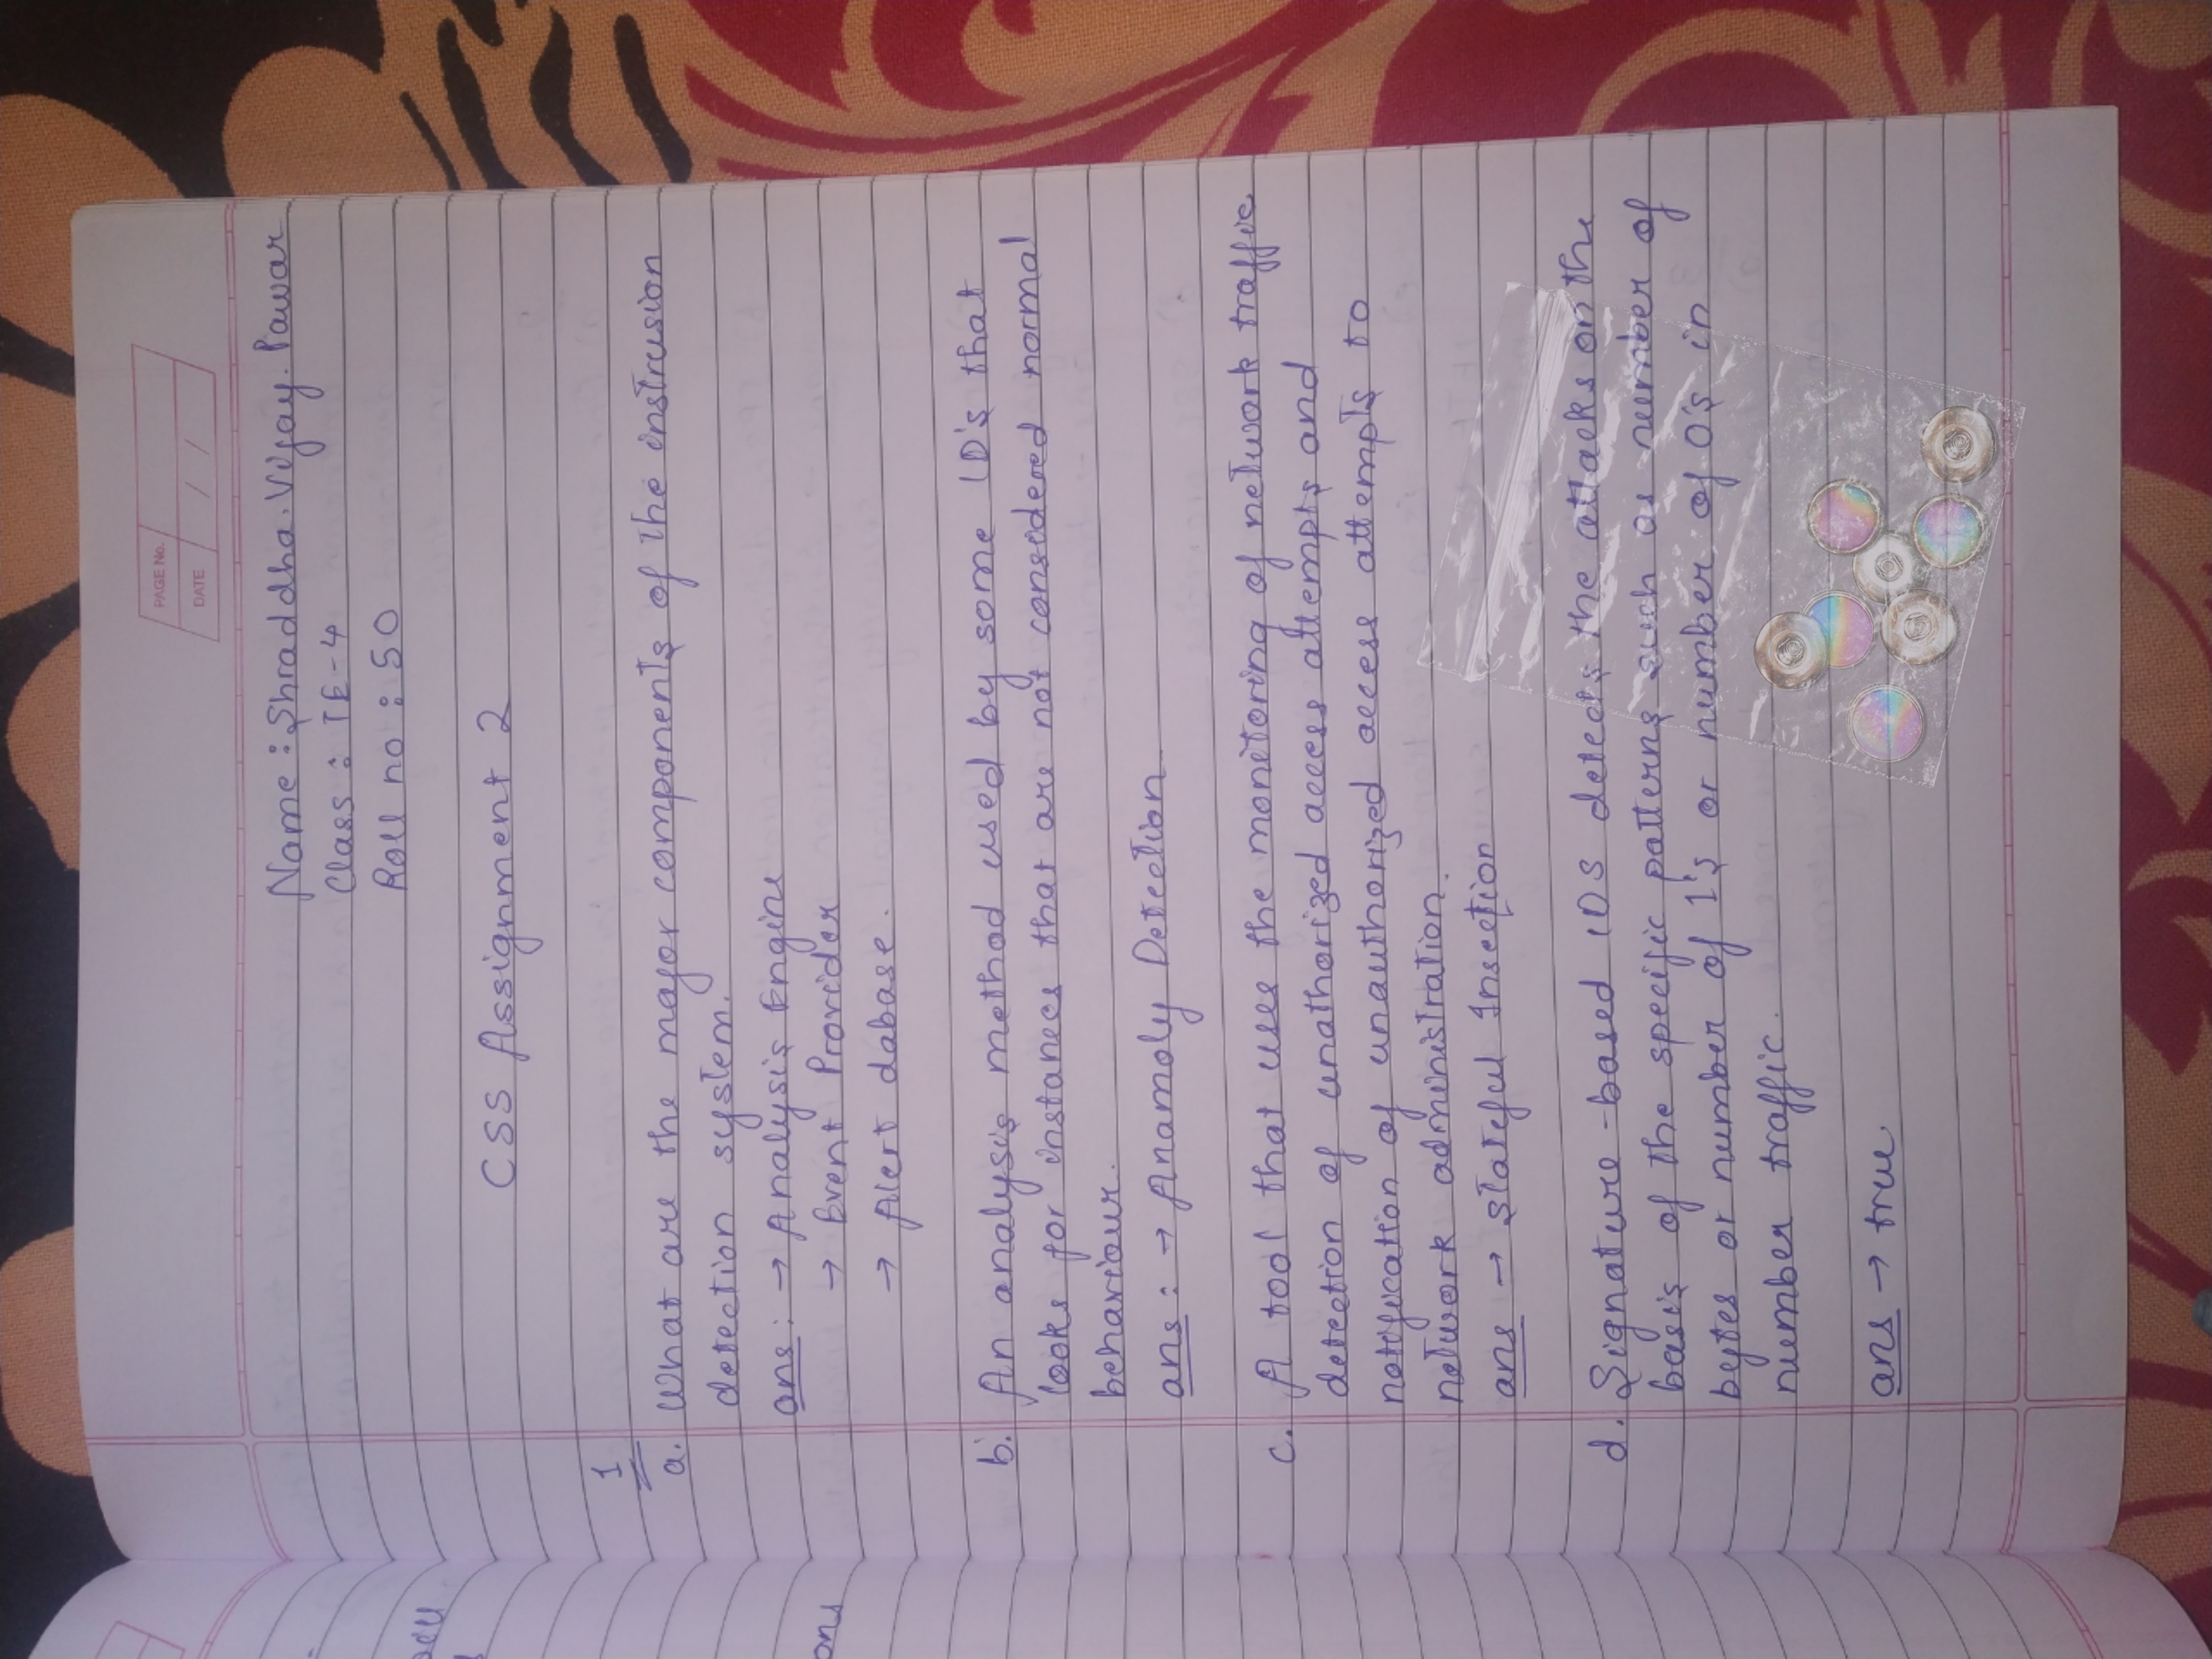 PAGE No.
DATE / /
Name : Shraddha. Vijay. Pawar
Class : TE-4
Roll no : 50
CSS Assignment 2
1
a. What are the major components of the instrusion
detection system.
ans : → Analysis Engine
→ Event Provider
→ Alert dabase.
b. An analysis method used by some ID's that
looks for instances that are not considered normal
behaviour.
ans : → Anamoly Detection
c. A tool that uses the monitoring of network traffic
detection of unathorized access attempts and
notification of unauthorized access attempts to
network administration.
ans → Stateful Insection
d. Signature-based IDS detects the attacks on the
basis of the specific patterns such as number of
bytes or number of 1's or number of 0's in
number traffic.
ans → true
ons